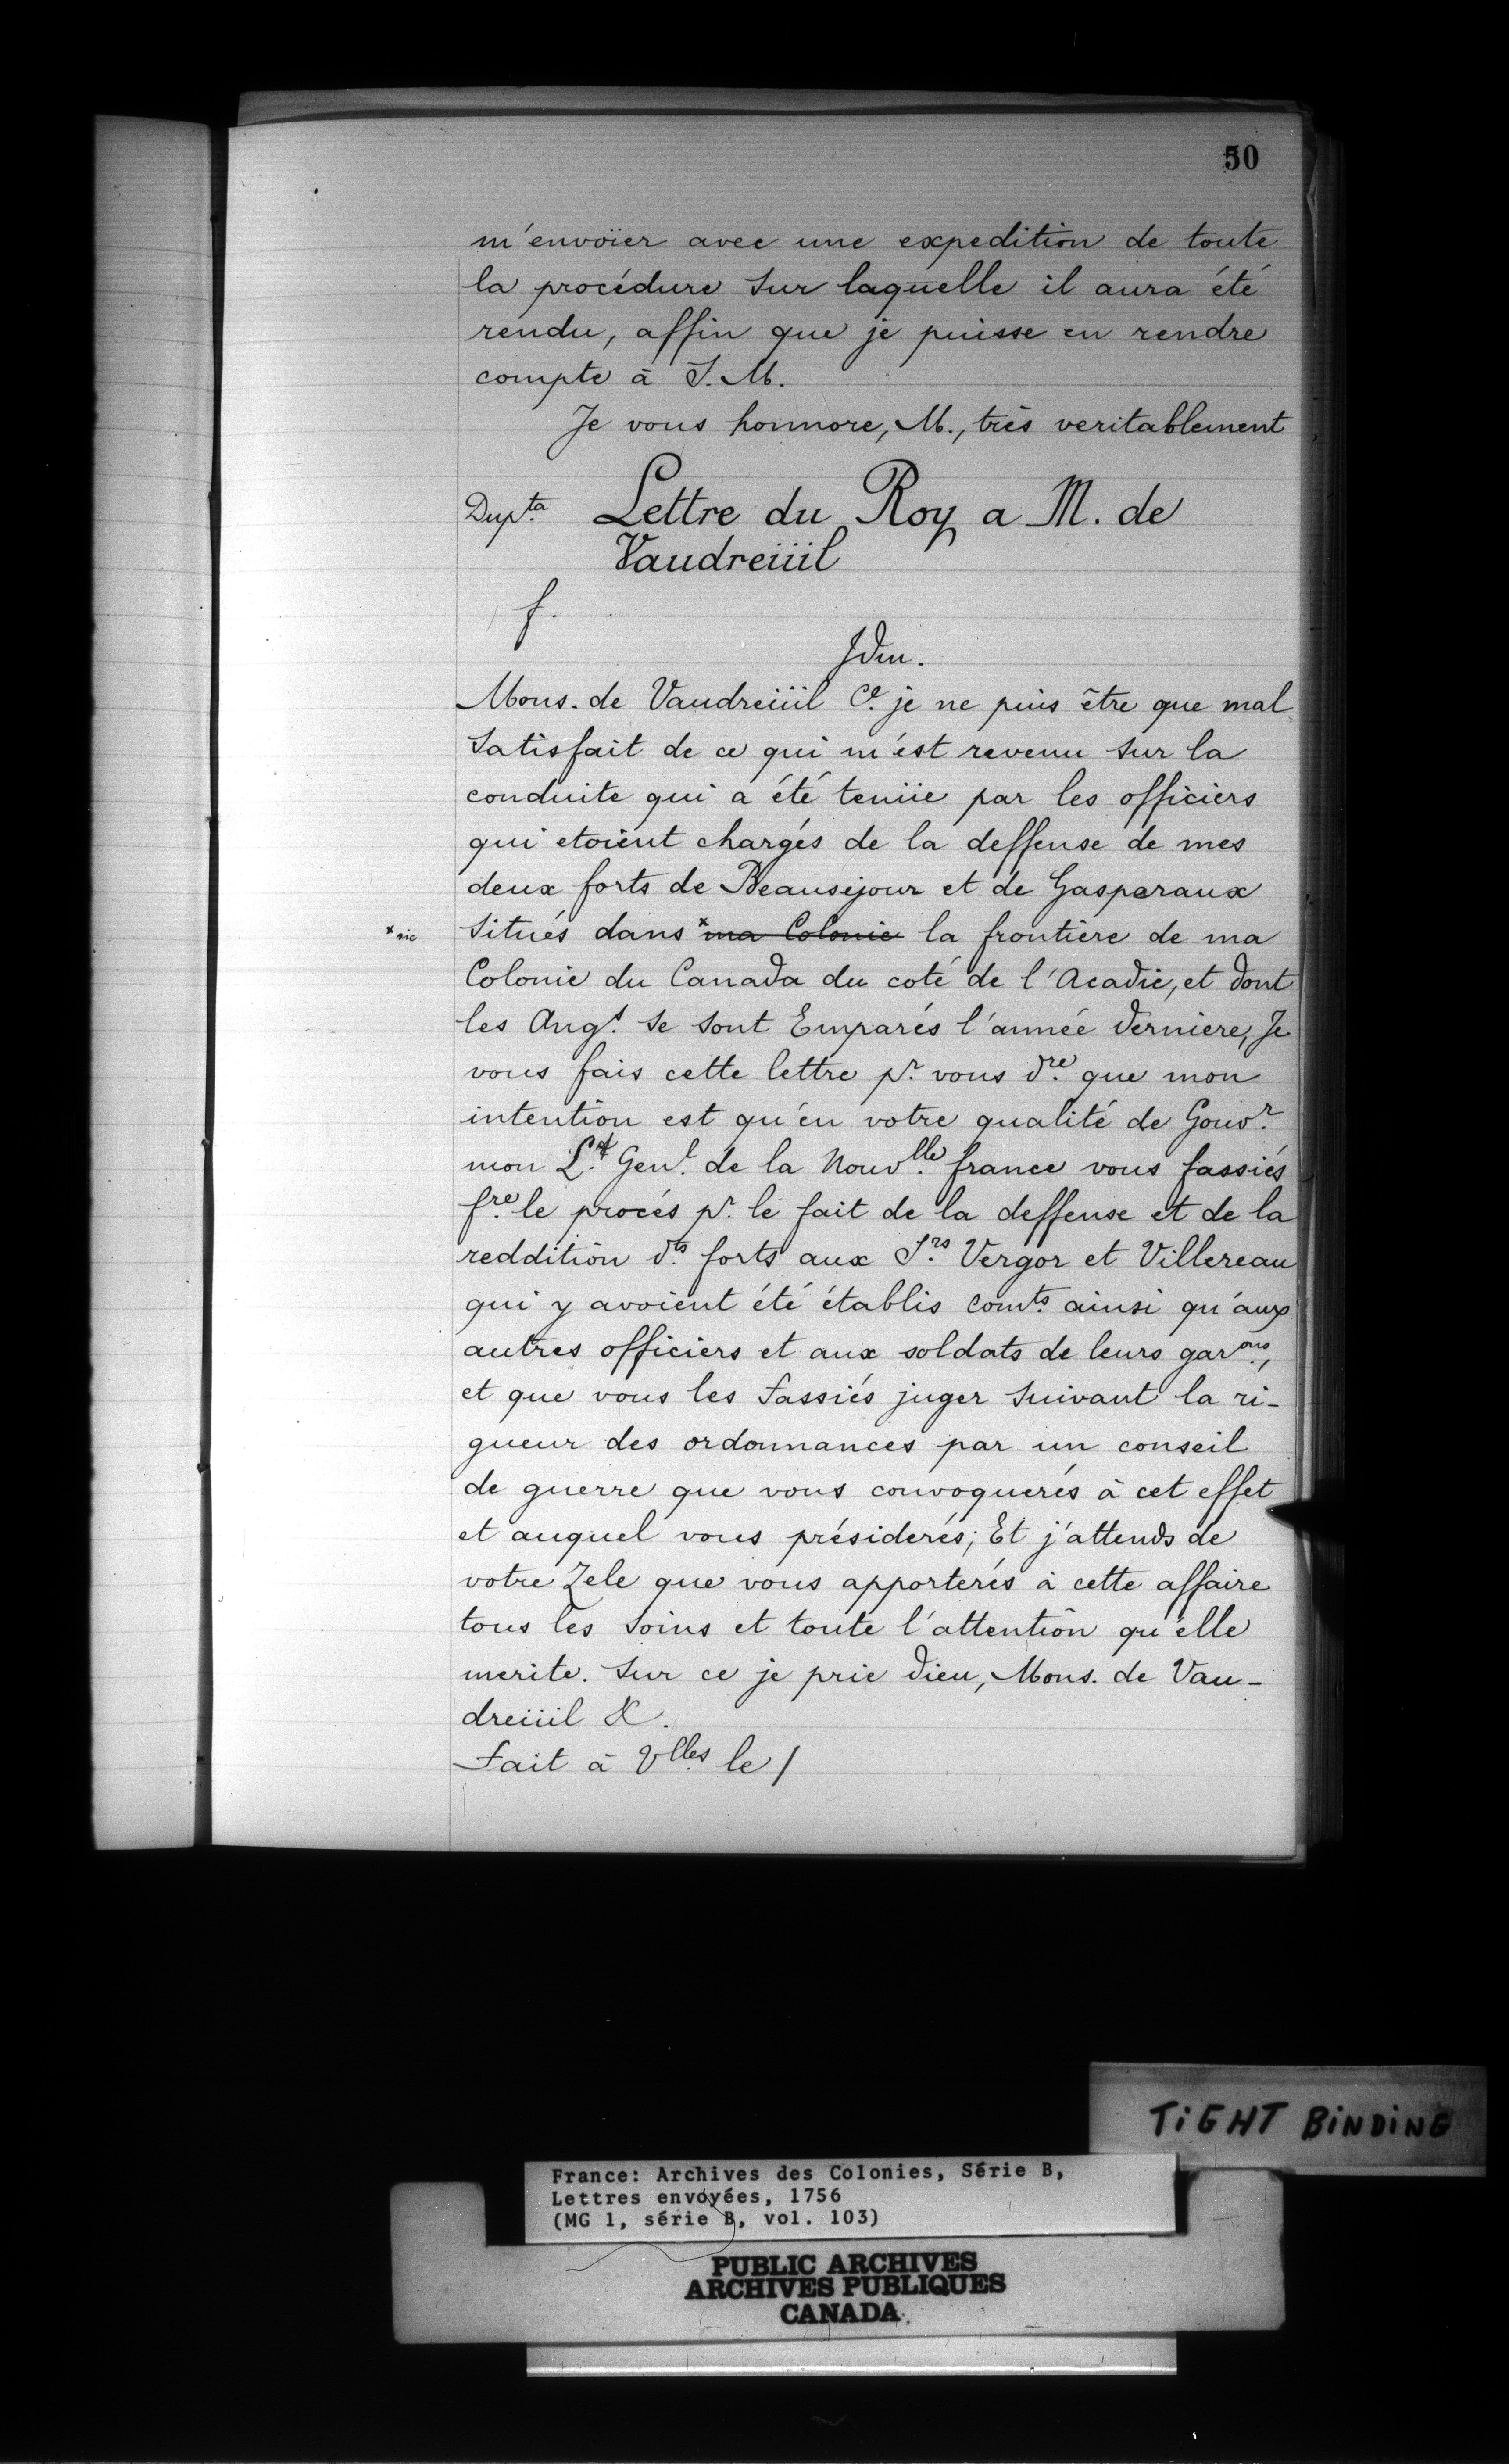 50
m'envoïer avec une expedition de toute
la procédure sur laquelle il aura été
rendu, affin que je puisse en rendre
compte à S. M.
Je vous honnore, M., très veritablement
Dupta. Lettre du Roy a M. de
Vaudreüil
f.
Idm.
Mons. de Vaudreüil &. je ne puis être que mal
satisfait de ce qui m'est revenu sur la
conduite qui a été tenüe par les officiers
qui etoient chargés de la deffense de mes
deux forts de Beausejour et de Gasparaux
x sic situés dans x ma Colonie la frontière de ma
Colonie du Canada du coté de l'Acadie, et dont
les Angs. se sont Emparés l'année derniere, Je
vous fais cette lettre pr. vous dre. que mon
intention est qu'en votre qualité de Gouvr.
mon Lt. Genl. de la Nouvlle. france vous fassiés
fre. le procés pr. le fait de la deffense et de la
reddition dts. forts aux Srs. Vergor et Villereau
qui y avoient été établis comts. ainsi qu'aux
autres officiers et aux soldats de leurs garons.,
et que vous les fassiés juger suivant la ri-
gueur des ordonnances par un conseil
de guerre que vous convoquerés à cet effet
et auquel vous présiderés; Et j'attends de
votre Zele que vous apporterés à cette affaire
tous les soins et toute l'attention qu'elle
merite. sur ce je prie dieu, Mons. de Vau-
dreüil &.
fait à Vlles. le /
TiGHT BiNDiNG
France: Archives des Colonies, Série B,
Lettres envoyées, 1756
(MG 1, série B, vol. 103)
PUBLIC ARCHIVES
ARCHIVES PUBLIQUES
CANADA